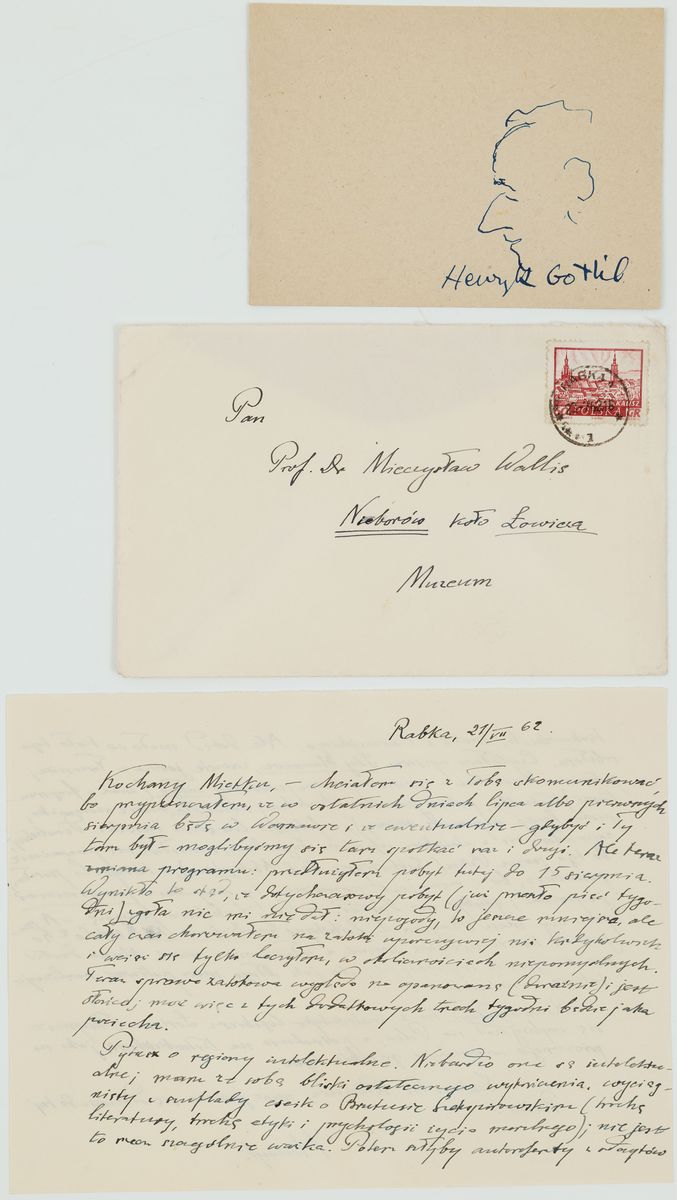 Henryk Gotlib
KALISZ
POLSKA
GR
RABKA 1
Pan
Prof. Dr Mieczysław Wallis
Nieborów koło Łowicza
Muzeum
Rabka, 21/VII 62.
Kochany Mietku, – chciałem się z Tobą skomunikować
bo przypuszczałem, że w ostatnich dniach lipca albo pierwszych
sierpnia będę w Warszawie i że ewentualnie – gdybyś i Ty
tam był – moglibyśmy się tam spotkać raz i drugi. Ale teraz
zmiana programu: przedłużyłem pobyt tutaj do 15 sierpnia.
Wynikło to stąd, że dotychczasowy pobyt (już prawie pięć tygo-
dni) zgoła nic mi nie dał: niepogody, to jeszcze mniejsza, ale
cały czas chorowałem na zatoki uporczywiej niż kiedykolwiek
i wciąż się tylko leczyłem, w okolicznościach niepomyślnych.
Teraz sprawa zatokowa wygląda na opanowaną (doraźnie) i jest
słońce; może więc z tych dodatkowych trzech tygodni będzie jaka
pociecha.
Pytasz o regiony intelektualne. Niebardzo one są intelektu-
alne; mam ze sobą bliski ostatecznego wykończenia, wyciąg-
nięty z szuflady eseik o Brutusie Szekspirowskim (trochę
literatury, trochę etyki i psychologii życia moralnego); nie jest
to rzecz szczególnie ważka. Potem byłyby autoreferaty z odczytów